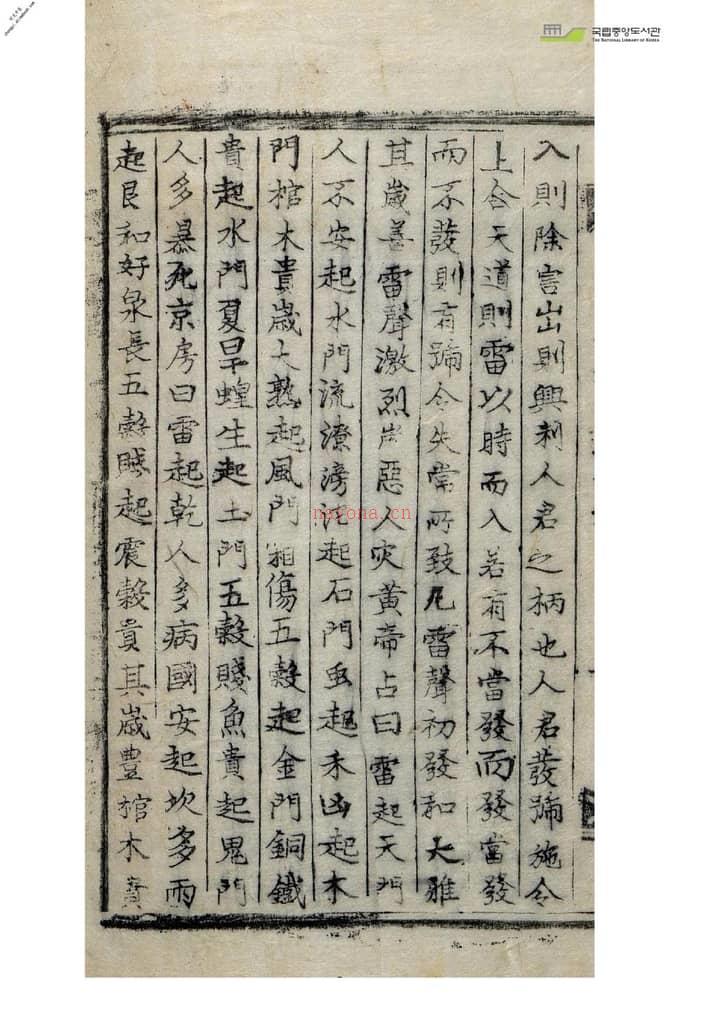 국립중앙도서관
THE NATIONAL LIBRARY OF KOREA
入則除害出則興利人君之柄也人君發號施令
上合天道則雷以時而入若有不當發而發當發
而不發則有蹄令失常所致凡雷聲初發和大雅
其歲善雷聲激烈歲惡人灾黃帝占曰雷起天門
人不安起水門流潦滂沱起石門虫起禾凶起木
門棺木貴歲大熟起風門霜傷五穀起金門銅鐵
貴起水門夏旱蝗生起土門五穀賤魚貴起鬼門
人多暴死京房曰雷起乾人多病國安起坎多雨
起艮和好泉長五穀賤起震穀貴其歲豊棺木貴
nayona.cn